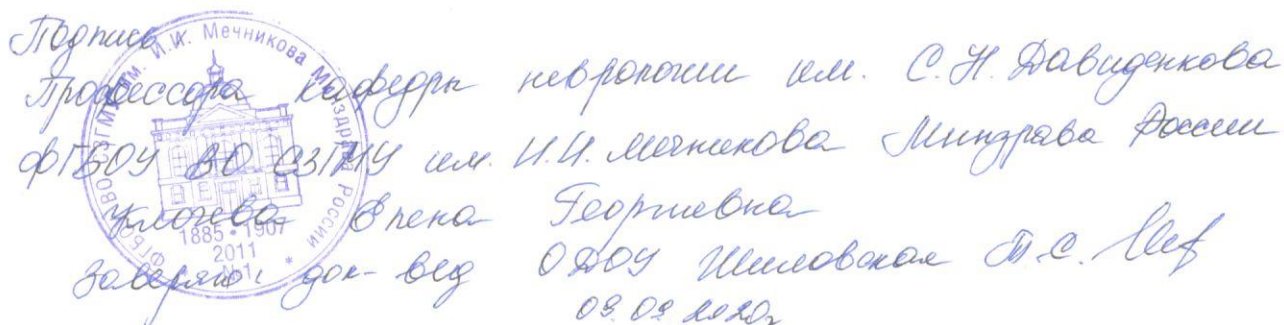 Подпись
Профессора кафедры неврологии им. С.Н. Давиденкова
ФГБОУ ВО СЗГМУ им. И.И. Мечникова Минздрава России
Клочева Елена Георгиевна
Заверяю: док-вед ОДОУ Т.С.
2020г
ФГБОУ ВО СЗГМУ им. И.И. Мечникова Минздрава России
1885 • 1907
2011
№1